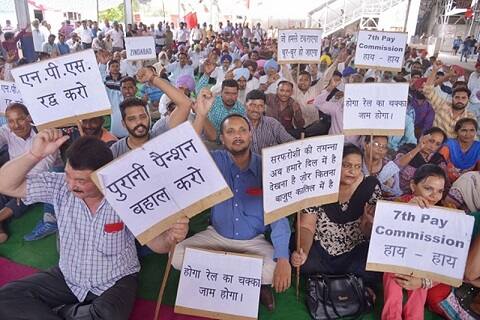 ZINDABAD
जो हमसे टकराएगा
चूर-चूर हो जाएगा
7th Pay
Commission
हाय - हाय
एन.पी.एस.
रद्द करो
होगा रेल का चक्का
जाम होगा।
पुरानी पैन्शन
बहाल करो
सरफरोशी की तमन्ना
अब हमारे दिल में है
देखना है ज़ोर कितना
बाजुए कातिल में है
7th Pay
Commission
हाय - हाय
होगा रेल का चक्का
जाम होगा।